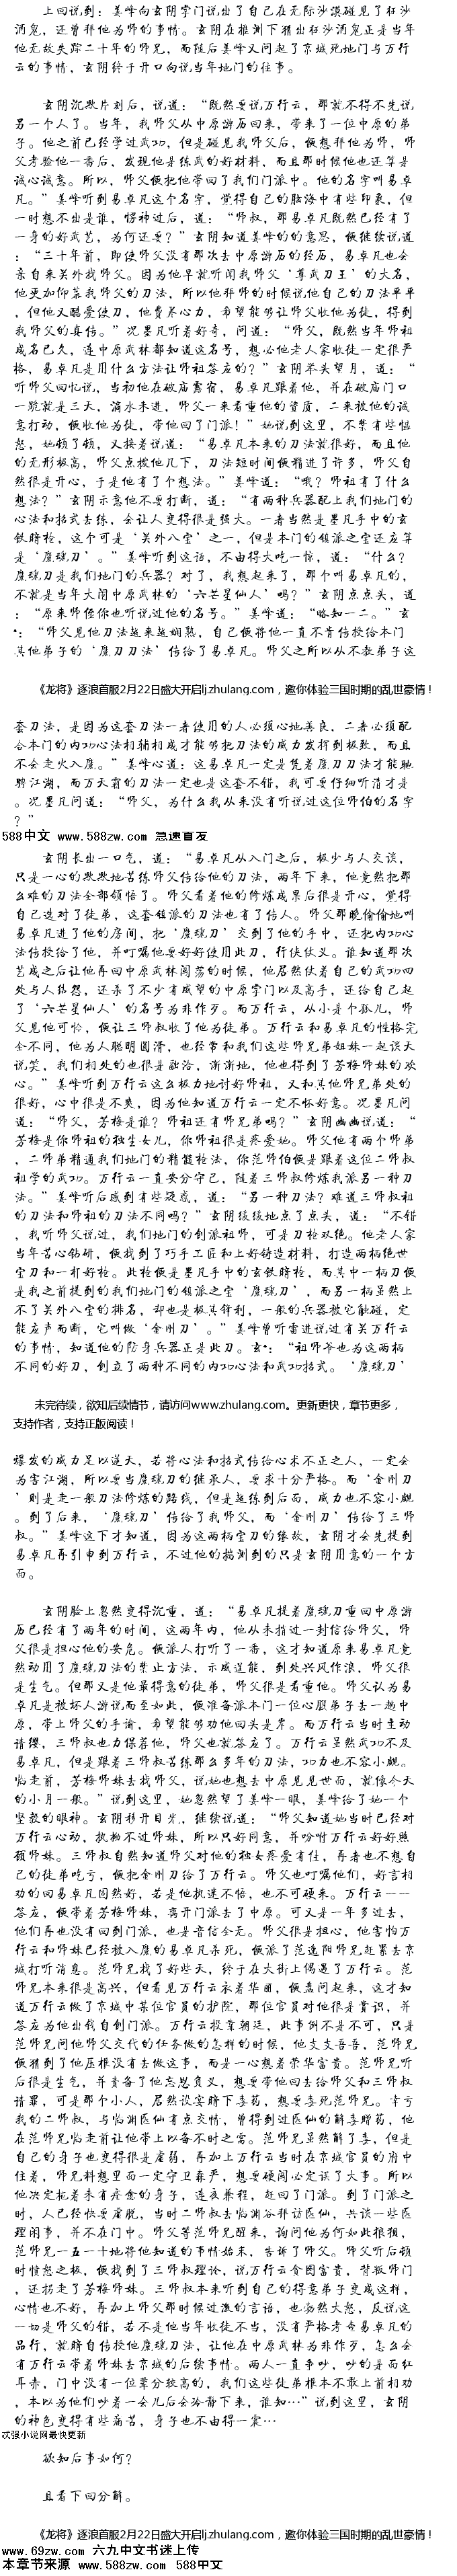 上回说到：姜峰向玄阴掌门说出了自己在无际沙漠碰见了狂沙
酒鬼，还曾拜他为师的事情。玄阴在推测下猜出狂沙酒鬼正是当年
他无故失踪二十年的师兄，而随后姜峰又问起了京城死地门与万行
云的事情，玄阴终于开口向说当年地门的往事。
玄阴沉默片刻后，说道：“既然要说万行云，那就不得不先说
另一个人了。当年，我师父从中原游历回来，带来了一位中原的弟
子。他之前已经学过武功，但是碰见我师父后，便想拜他为师，师
父考验他一番后，发现他是练武的好材料，而且那时候他也还算是
诚心诚意。所以，师父便把他带回了我们门派中。他的名字叫易卓
凡。”姜峰听到易卓凡这个名字，觉得自己的脑海中有些印象，但
一时想不出是谁，愣神过后，道：“师叔，那易卓凡既然已经有了
一身的好武艺，为何还要？”玄阴知道姜峰的的意思，便继续说道
：“三十年前，即使师父没有那次去中原游历的经历，易卓凡也会
亲自来关外找师父。因为他早就听闻我师父‘尊武刀王’的大名，
他更加仰慕我师父的刀法，所以他拜师的时候说他自己的刀法平平
，但他又酷爱使刀，他费尽心力，希望能够让师父收他为徒，得到
我师父的真传。”况墨凡听着好奇，问道：“师父，既然当年师祖
成名已久，连中原武林都知道这名号，想必他老人家收徒一定很严
格，易卓凡是用什么方法让师祖答应的？”玄阴举头望月，道：“
听师父回忆说，当初他在破庙露宿，易卓凡跟着他，并在破庙门口
一跪就是三天，滴水未进，师父一来看重他的资质，二来被他的诚
意打动，便收他为徒，带他回了门派！”她说到这里，不禁有些恼
怒，她顿了顿，又接着说道：“易卓凡本来的刀法就很好，而且他
的无形极高，师父点拨他几下，刀法短时间便精进了许多，师父自
然很是开心，于是他有了个想法。”姜峰道：“哦？师祖有了什么
想法？”玄阴示意他不要打断，道：“有两种兵器配上我们地门的
心法和招式去练，会让人变得很是强大。一者当然是墨凡手中的玄
铁暗枪，这个可是‘关外八宝’之一，但是本门的镇派之宝还应算
是‘魔魂刀’。”姜峰听到这话，不由得大吃一惊，道：“什么？
魔魂刀是我们地门的兵器？对了，我想起来了，那个叫易卓凡的，
不就是当年大闹中原武林的‘六芒星仙人’吗？”玄阴点点头，道
：“原来师侄你也听说过他的名号。”姜峰道：“略知一二。”玄
•：“师父见他刀法越来越娴熟，自己便将他一直不肯传授给本门
其他弟子的‘魔刀刀法’传给了易卓凡。师父之所以从不教弟子这
《龙将》逐浪首服2月22日盛大开启lj.zhulang.com，邀你体验三国时期的乱世豪情！
套刀法，是因为这套刀法一者使用的人必须心地善良，二者必须配
合本门的内功心法相辅相成才能够把刀法的威力发挥到极致，而且
不会走火入魔。”姜峰心道：这易卓凡一定是凭着魔刀刀法才能驰
骋江湖，而万天霸的刀法一定也是这套不错，我可要仔细听清才是
。况墨凡问道：“师父，为什么我从来没有听说过这位师伯的名字
？”
588中文 www.588zw.com 急速首发
玄阴长出一口气，道：“易卓凡从入门之后，极少与人交谈，
只是一心的默默地苦练师父传给他的刀法，两年下来，他竟然把那
么难的刀法全部领悟了。师父看着他的修炼成果后很是开心，觉得
自己选对了徒弟，这套镇派的刀法也有了传人。师父那晚偷偷地叫
易卓凡进了他的房间，把‘魔魂刀’交到了他的手中，还把内功心
法传授给了他，并叮嘱他要好好使用此刀，行侠仗义。谁知道那次
艺成之后让他再回中原武林闯荡的时候，他居然仗着自己的武功四
处与人结怨，还杀了不少有威望的中原掌门以及高手，还给自己起
了‘六芒星仙人’的名号为非作歹。而万行云，从小是个孤儿，师
父见他可怜，便让三师叔收了他为徒弟。万行云和易卓凡的性格完
全不同，他为人聪明圆滑，也经常和我们这些师兄弟姐妹一起谈天
说笑，我们相处的也很是融洽，渐渐地，他也得到了芳梅师妹的欢
心。”姜峰听到万行云这么极力地讨好师祖，又和其他师兄弟处的
很好，心中很是不爽，因为他知道万行云一定不怀好意。况墨凡问
道：“师父，芳梅是谁？师祖还有师兄弟吗？”玄阴幽幽说道：“
芳梅是你师祖的独生女儿，你师祖很是疼爱她。师父他有两个师弟
，二师弟精通我们地门的精髓枪法，你范师伯便是跟着这位二师叔
祖学的武功。万行云一直安分守己，随着三师叔修炼我派另一种刀
法。”姜峰听后感到有些疑惑，道：“另一种刀法？难道三师叔祖
的刀法和师祖的刀法不同吗？”玄阴缓缓地点了点头，道：“不错
，我听师父说过，我们地门的创派祖师，可是刀枪双绝。他老人家
当年苦心钻研，便找到了巧手工匠和上好铸造材料，打造两柄绝世
宝刀和一杆好枪。此枪便是墨凡手中的玄铁暗枪，而其中一柄刀便
是我之前提到的我们地门的镇派之宝‘魔魂刀’，而另一柄虽然上
不了关外八宝的排名，却也是极其锋利，一般的兵器被它触碰，定
能应声而断，它叫做‘金刚刀’。”姜峰曾听雷进说过有关万行云
的事情，知道他的防身兵器正是此刀。玄•：“祖师爷也为这两柄
不同的好刀，创立了两种不同的内功心法和武功招式。‘魔魂刀’
未完待续，欲知后续情节，请访问www.zhulang.com。更新更快，章节更多，
支持作者，支持正版阅读！
爆发的威力足以逆天，若将心法和招式传给心术不正之人，一定会
为害江湖，所以要当魔魂刀的继承人，要求十分严格。而‘金刚刀
’则是走一般刀法修炼的路线，但是越练到后面，威力也不容小觑
。到了后来，‘魔魂刀’传给了我师父，而‘金刚刀’传给了三师
叔。”姜峰这下才知道，因为这两柄宝刀的缘故，玄阴才会先提到
易卓凡再引申到万行云，不过他的揣测到的只是玄阴用意的一个方
面。
玄阴脸上忽然变得沉重，道：“易卓凡提着魔魂刀重回中原游
历已经有了两年的时间，这两年内，他从未指过一封信给师父，师
父很是担心他的安危。便派人打听了一番，这才知道原来易卓凡竟
然动用了魔魂刀法的禁止方法，示威逞能，到处兴风作浪，师父很
是生气。但那又是他最得意的徒弟，师父很是看重他。师父认为易
卓凡是被坏人游说而至如此，便准备派本门一位心腹弟子去一趟中
原，带上师父的手谕，希望能够劝他回头是岸。而万行云当时主动
请缨，三师叔也力保荐他，师父也就答应了。万行云虽然武功不及
易卓凡，但是跟着三师叔苦练那么多年的刀法，功力也不容小觑。
临走前，芳梅师妹去找师父，说她也想去中原见见世面，就像今天
的小月一般。”说到这里，她忽然望了姜峰一眼，姜峰给了她一个
坚毅的眼神。玄阴移开目光，继续说道：“师父知道她当时已经对
万行云心动，执拗不过师妹，所以只好同意，并吩咐万行云好好照
顾师妹。三师叔自然知道师父对他的独女疼爱有佳，再者也不想自
己的徒弟吃亏，便把金刚刀给了万行云。师父也叮嘱他们，好言相
劝的回易卓凡固然好，若是他执迷不悟，也不可硬来。万行云一一
答应，便带着芳梅师妹，离开门派去了中原。可又是一年多过去，
他们再也没有回到门派，也是音信全无。师父很是担心，他害怕万
行云和师妹已经被入魔的易卓凡杀死，便派了范逸阳师兄赶紧去京
城打听消息。范师兄找了好些天，终于在大街上偶遇了万行云。范
师兄本来很是高兴，但看见万行云衣着华丽，便盘问起来，这才知
道万行云做了京城中某位官员的护院，那位官员对他很是赏识，并
答应为他出钱自创门派。万行云投靠朝廷，此事倒不是不可，只是
范师兄问他师父交代的任务做的怎样的时候，他支支吾吾，范师兄
便猜到了他压根没有去做这事，而是一心想着荣华富贵。范师兄听
后很是生气，并责备了他忘恩负义，想要带他回去给师父和三师叔
请罪，可是那个小人，居然设宴暗下毒药，想要毒死范师兄。幸亏
我的二师叔，与临渊医仙有点交情，曾得到过医仙的解毒赠药，他
在范师兄临走前让他带上以备不时之需。范师兄虽然解了毒，但是
自己的身子也变得很是虚弱，再加上万行云当时在京城官员的府中
住着，师兄料想里面一定守卫森严，想要硬闯必定误了大事。所以
他决定拖着未有痊愈的身子，连夜兼程，赶回了门派。到了门派之
时，人已经快要虚脱，当时二师叔去临渊谷拜访医仙，共谈一些医
理闲事，并不在门中。师父等范师兄醒来，询问他为何如此狼狈，
范师兄一五一十地将他知道的事情始末，告诉了师父。师父听后顿
时愤怒之极，便找到了三师叔理论，说万行云贪图富贵，背叛师门
，还拐走了芳梅师妹。三师叔本来听到自己的得意弟子变成这样，
心情也不好，再加上师父那时候过激的言语，也勃然大怒，反说这
一切是师父的错，若不是他当年收徒不当，没有严格考查易卓凡的
品行，就暗自传授他魔魂刀法，让他在中原武林为非作歹，怎么会
有万行云带着师妹去京城的后续事情。两人一直争吵，吵的是面红
耳赤，门中没有一位辈分较高的，我们这些徒弟根本不敢上前相劝
，本以为他们吵着一会儿后会冷静下来，谁知…”说到这里，玄阴
的神色变得有些痛苦，身子也不由得一震…
忒强小说网最快更新
欲知后事如何？
且看下回分解。
《龙将》逐浪首服2月22日盛大开启lj.zhulang.com，邀你体验三国时期的乱世豪情！
www.69zw.com 六九中文书迷上传
本章节来源 www.588zw.com 588中文